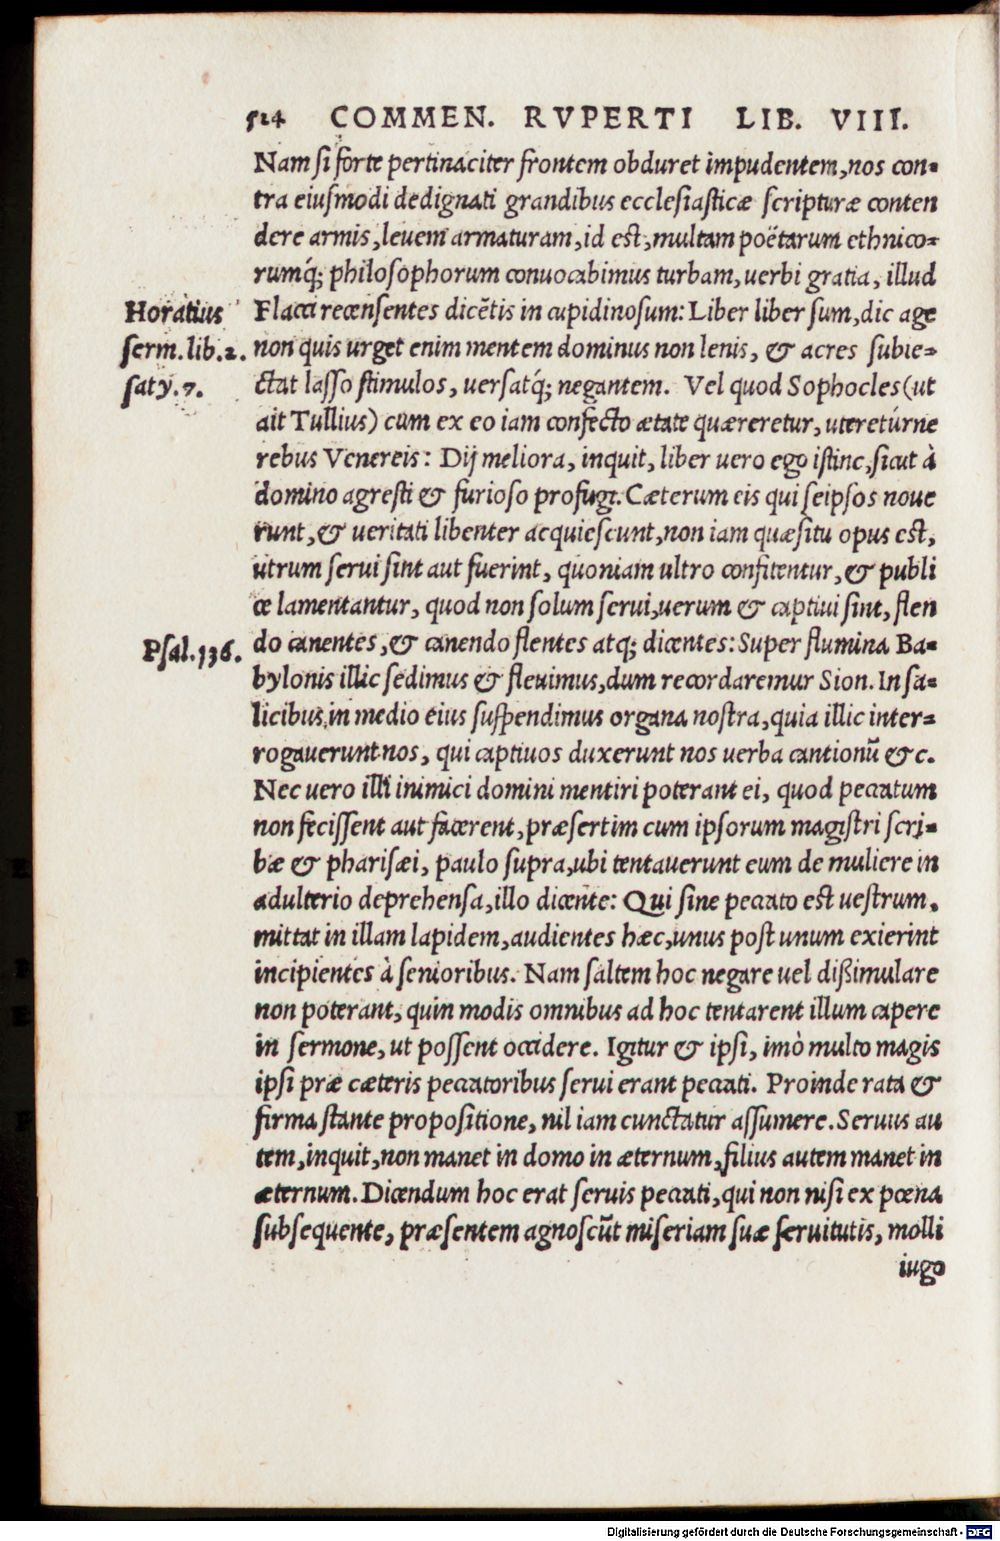 524 COMMEN. RVPERTI LIB. VIII.
Nam ſi forte pertinaciter frontem obduret impudentem, nos con-
tra eiuſmodi dedignati grandibus eccleſiaſticæ ſcripturæ conten
dere armis, leuem armaturam, id eſt, multam poëtarum ethnico-
rumq́; philoſophorum conuocabimus turbam, uerbi gratia, illud
Horatius
ſerm. lib. 2.
ſaty. 7.
Flacci recenſentes dicẽtis in cupidinoſum: Liber liber ſum, dic age
non quis urget enim mentem dominus non lenis, & acres ſubie-
ctat laſſo ſtimulos, uerſatq́; negantem. Vel quod Sophocles (ut
ait Tullius) cum ex eo iam confecto ætate quæreretur, uteretúrne
rebus Venereis: Dij meliora, inquit, liber uero ego iſtinc, ſicut à
domino agreſti & furioſo profugi. Cæterum eis qui ſeipſos noue
runt, & ueritati libenter acquieſcunt, non iam quæſitu opus eſt,
utrum ſerui ſint aut fuerint, quoniam ultro confitentur, & publi
ce lamentantur, quod non ſolum ſerui, uerum & captiui ſint, flen
Pſal. 136.
do canentes, & canendo flentes atq; dicentes: Super flumina Ba-
bylonis illic ſedimus & fleuimus, dum recordaremur Sion. In ſa-
licibus in medio eius ſuſpendimus organa noſtra, quia illic inter-
rogauerunt nos, qui captiuos duxerunt nos uerba cantionũ &c.
Nec uero illi inimici domini mentiri poterant ei, quod peccatum
non feciſſent aut facerent, præſertim cum ipſorum magiſtri ſcri-
bæ & phariſæi, paulo ſupra, ubi tentauerunt eum de muliere in
adulterio deprehenſa, illo dicente: Qui ſine peccato eſt ueſtrum,
mittat in illam lapidem, audientes hæc, unus poſt unum exierint
incipientes à ſenioribus. Nam ſaltem hoc negare uel dißimulare
non poterant, quin modis omnibus ad hoc tentarent illum capere
in ſermone, ut poſſent occidere. Igitur & ipſi, imò multo magis
ipſi præ cæteris peccatoribus ſerui erant peccati. Proinde rata &
firma ſtante propoſitione, nil iam cunctatur aſſumere. Seruus au
tem, inquit, non manet in domo in æternum, filius autem manet in
æternum. Dicendum hoc erat ſeruis peccati, qui non niſi ex pœna
ſubſequente, præſentem agnoſcũt miſeriam ſuæ ſeruitutis, molli
iugo
Digitalisierung gefördert durch die Deutsche Forschungsgemeinschaft - DFG